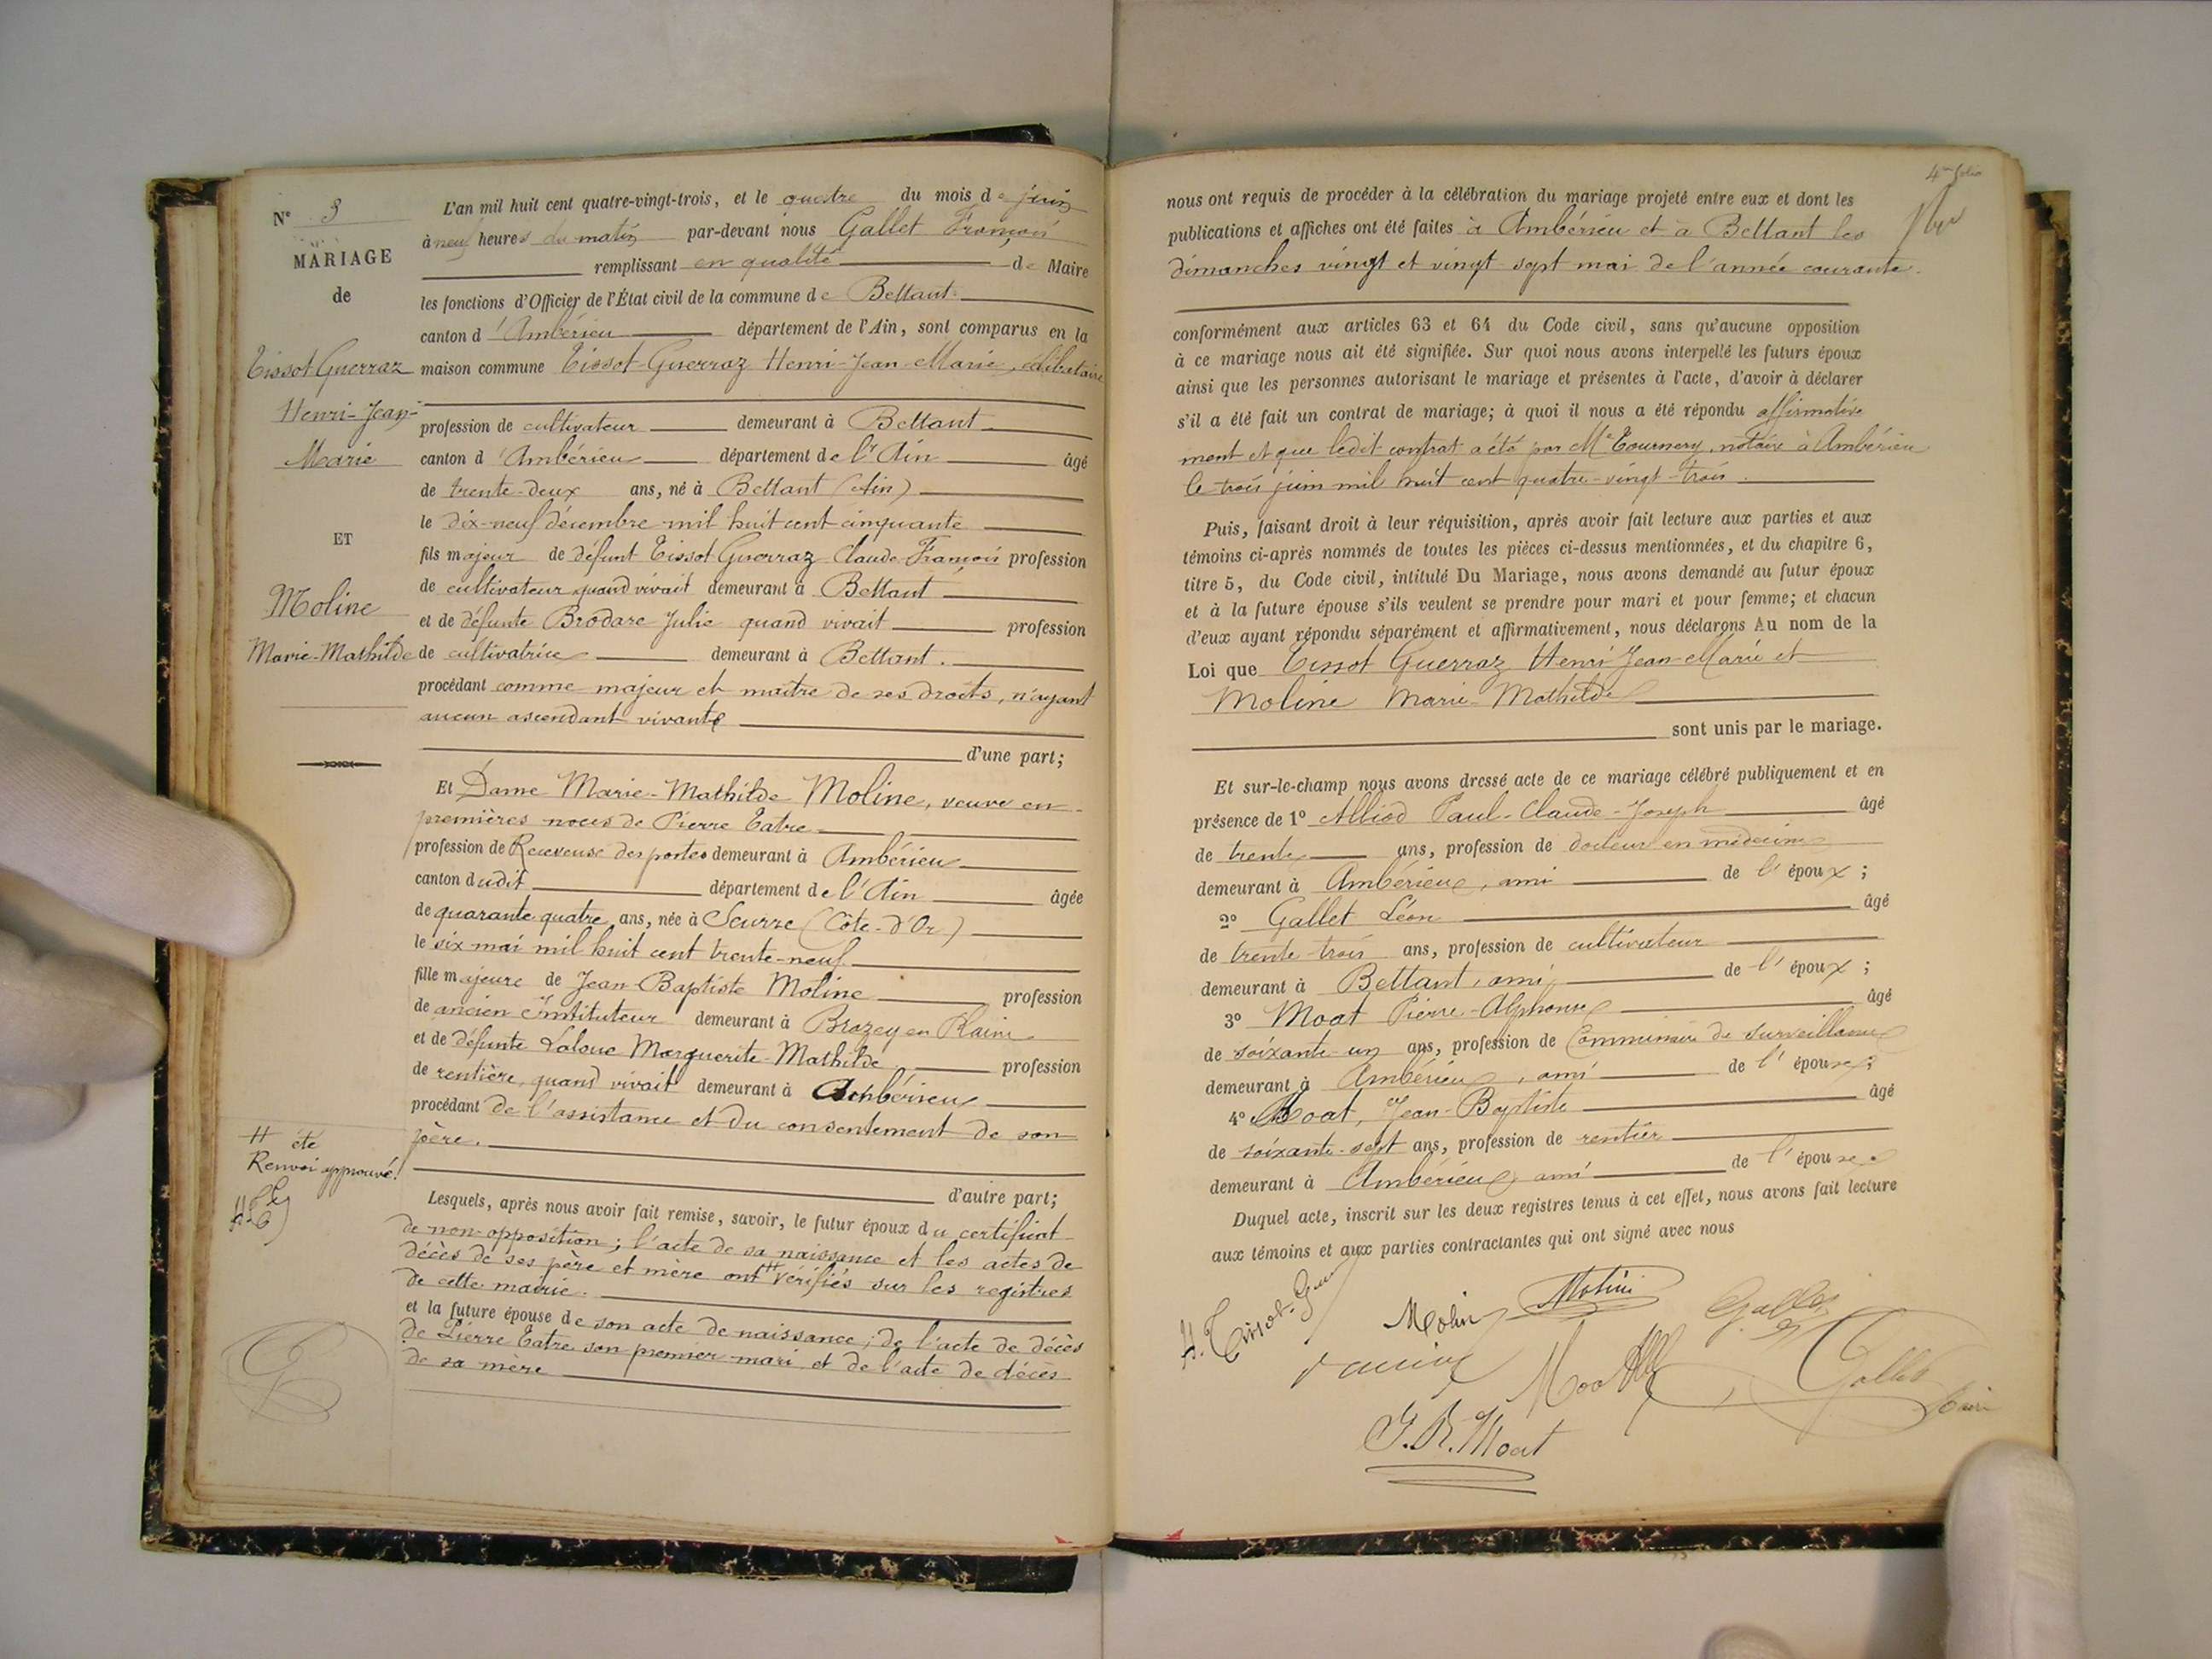 N° 3
MARIAGE
de
Tissot-Guerraz
Henri-Jean-
Marie
ET
Moline
Marie-Mathilde
# été
Renvoi approuvé!
L'an mil huit cent quatre-vingt-trois, et le quatre du mois de juin
à neuf heures du matin par-devant nous Gallet François
remplissant en qualité de Maire
les fonctions d'Officier de l'État civil de la commune de Bettant
canton d'Ambérieu département de l'Ain, sont comparus en la
maison commune Tissot-Guerraz Henri-Jean-Marie, célibataire
profession de cultivateur demeurant à Bettant
canton d'Ambérieu département de l'Ain âgé
de trente-deux ans, né à Bettant (Ain)
le dix-neuf décembre mil huit cent cinquante
fils majeur de défunt Tissot Guerraz Claude-François profession
de cultivateur quand vivait demeurant à Bettant
et de défunte Brodare Julie quand vivait profession
de cultivatrice demeurant à Bettant.
procédant comme majeur et maître de ses droits, n'ayant
aucun ascendant vivant
d'une part;
Et Dame Marie-Mathilde Moline, veuve en
premières noces de Pierre Tatre
profession de Receveuse des postes demeurant à Ambérieu
canton dudit département de l'Ain âgée
de quarante quatre ans, née à Seurre (Côte-d'Or)
le six mai mil huit cent trente-neuf
fille majeure de Jean-Baptiste Moline profession
de ancien instituteur demeurant à Brazey en Plaine
et de défunte Laloue Marguerite-Mathilde profession
de rentière, quand vivait demeurant à Ambérieu
procédant de l'assistance et du consentement de son
père.
d'autre part;
Lesquels, après nous avoir fait remise, savoir, le futur époux du certificat
de non-opposition; l'acte de sa naissance et les actes de
décès de ses père et mère ont # vérifiés sur les registres
de cette mairie.
et la future épouse de son acte de naissance; de l'acte de décès
de Pierre Tatre son premier mari et de l'acte de décès
de sa mère
4me folio
nous ont requis de procéder à la célébration du mariage projeté entre eux et dont les
publications et affiches ont été faites à Ambérieu et à Bettant les
dimanches vingt et vingt-sept mai de l'année courante.
conformément aux articles 63 et 64 du Code civil, sans qu'aucune opposition
à ce mariage nous ait été signifiée. Sur quoi nous avons interpellé les futurs époux
ainsi que les personnes autorisant le mariage et présentes à l'acte, d'avoir à déclarer
s'il a été fait un contrat de mariage; à quoi il nous a été répondu affirmative
ment et que ledit contrat a été par Me Tournery, notaire à Ambérieu
le trois juin mil huit cent quatre-vingt-trois.
Puis, faisant droit à leur réquisition, après avoir fait lecture aux parties et aux
témoins ci-après nommés de toutes les pièces ci-dessus mentionnées, et du chapitre 6,
titre 5, du Code civil, intitulé Du Mariage, nous avons demandé au futur époux
et à la future épouse s'ils veulent se prendre pour mari et pour femme; et chacun
d'eux ayant répondu séparément et affirmativement, nous déclarons Au nom de la
Loi que Tissot Guerraz Henri Jean-Marie et
Moline Marie-Mathilde
sont unis par le mariage.
Et sur-le-champ nous avons dressé acte de ce mariage célébré publiquement et en
présence de 1° Alliod Paul-Claude-Joseph âgé
de trente ans, profession de docteur en médecine
demeurant à Ambérieu, ami de l'époux;
2° Gallet Léon âgé
de trente-trois ans, profession de cultivateur
demeurant à Bettant, ami de l'époux;
3° Moat Pierre-Alphonse âgé
de soixante-un ans, profession de Commissaire de surveillance
demeurant à Ambérieu, ami de l'épouse;
4° Moat, Jean-Baptiste âgé
de soixante-sept ans, profession de rentier
demeurant à Ambérieu, ami de l'épouse
Duquel acte, inscrit sur les deux registres tenus à cet effet, nous avons fait lecture
aux témoins et aux parties contractantes qui ont signé avec nous
H. Tissot-G
Moline
Gallet
Gallet
Maire
J.B. Moat